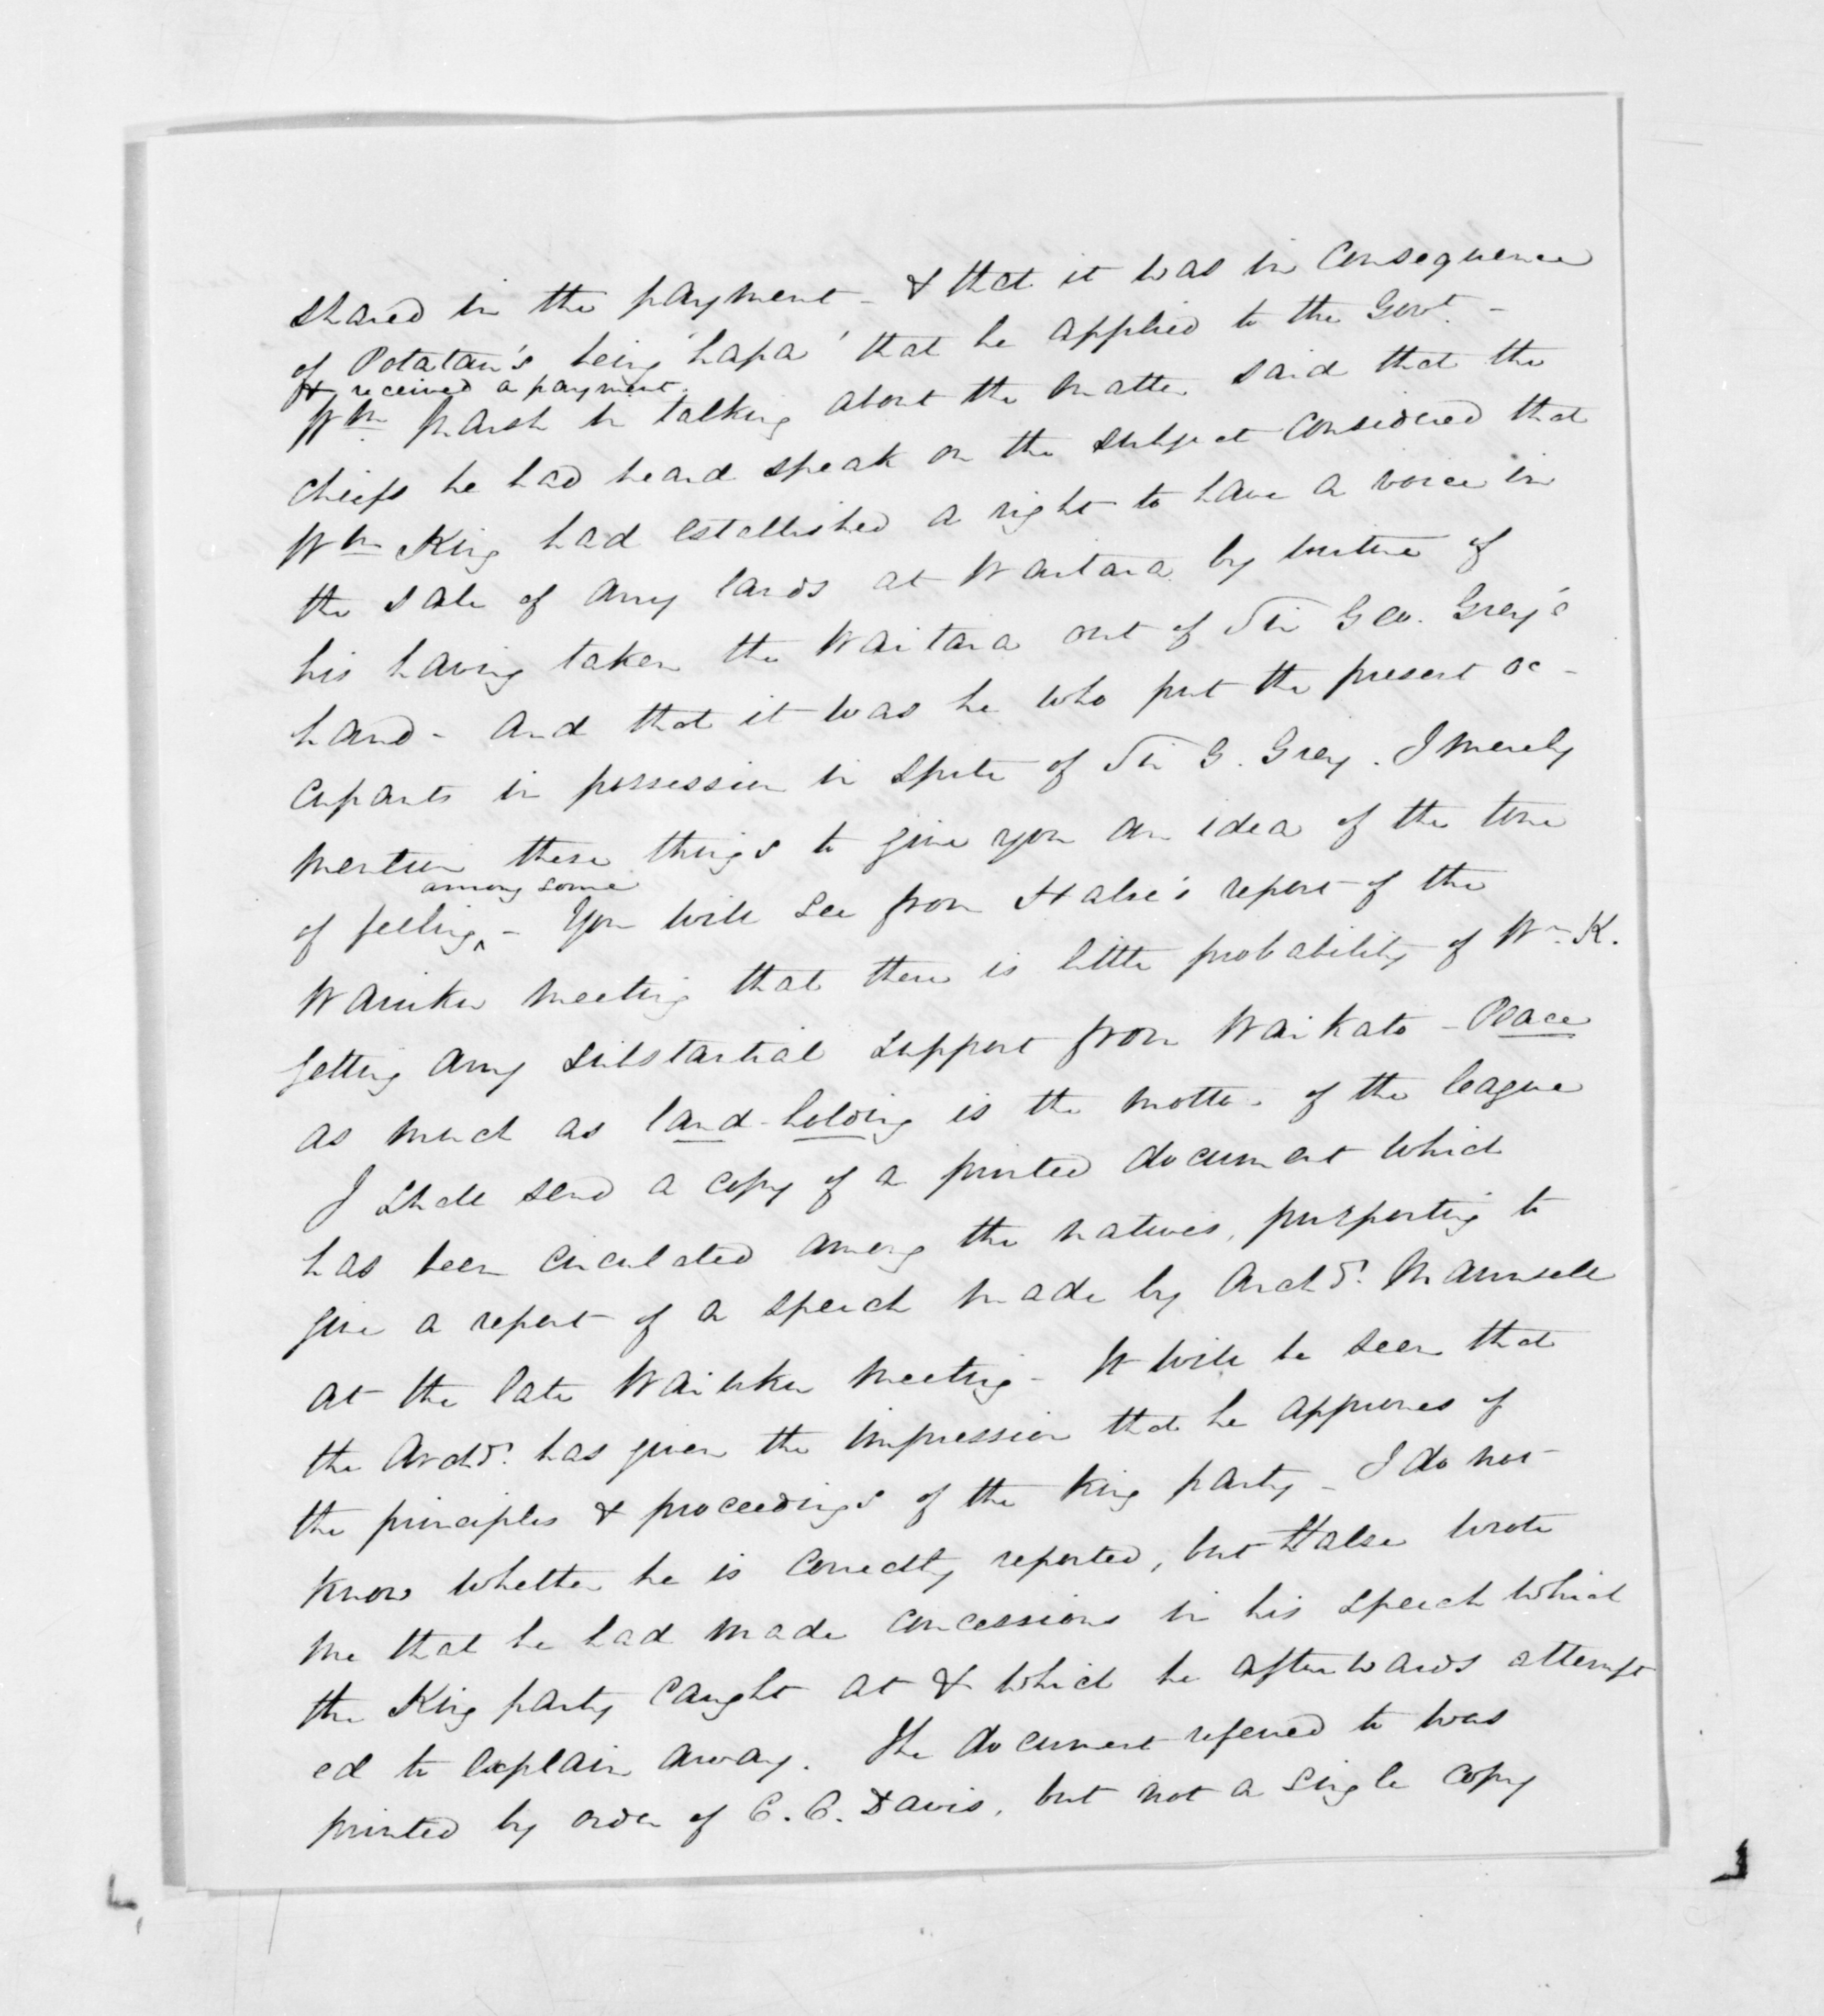 shared in the payment - & that it was in consequence
of Potatau's being 'hapa' that he applied to the Govt. -
& received a payment.
Wm. Marsh in talking about the matter said that the
chiefs he had heard speak on the subject considered that
Wm King had established a right to have a voice in
the sale of any lands at Waitara by virtue of
his having taken the Waitara out of Sir Geo. Grey's
hand - and that it was he who put the present oc-
cupants in possession in spite of Sir G. Grey. I merely
mention these things to give you an idea of the tone
among some
of feeling ^ - You will see from Halse's report of the
Waiuku meeting that there is little probability of Wm. K.
getting any substantial support from Waikato - Peace
as much as land-holding is the motto of the league
I shall send a copy of a printed document which
has been circulated among the natives, purporting to
give a report of a speech made by Archd. Maunsell
at the late Waiuku meeting - It will be seen that
the Archd. has given the impression that he approves of
the principles & proceedings of the King party - I do not
know whether he is correctly reported, but Halse wrote
me that he had made concessions in his speech which
the King party caught at & which he afterwards attempt
ed to explain away. The document referred to was
printed by order of C. O. Davis, but not a single copy